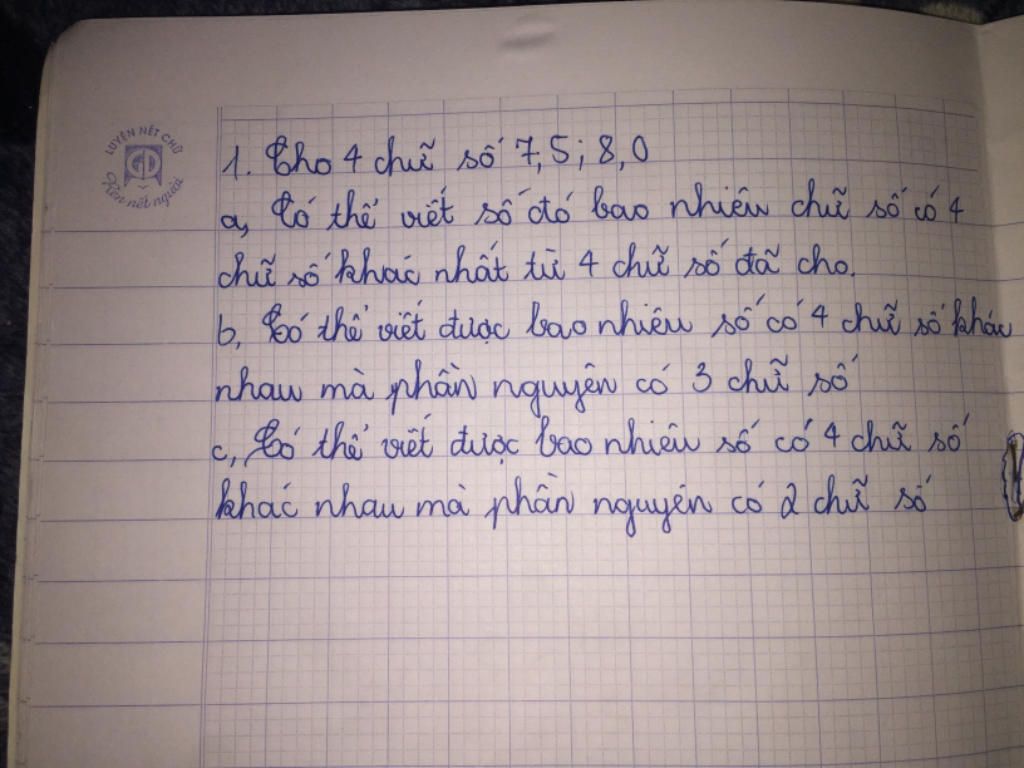 LUYỆN NÉT CHỮ
Rèn nết người
1. Cho 4 chữ số 7, 5; 8, 0
a, Có thể viết số đó bao nhiêu chữ số có 4
chữ số khác nhất từ 4 chữ số đã cho.
b, Có thể viết được bao nhiêu số có 4 chữ số khác
nhau mà phần nguyên có 3 chữ số
c, Có thể viết được bao nhiêu số có 4 chữ số
khác nhau mà phần nguyên có 2 chữ số